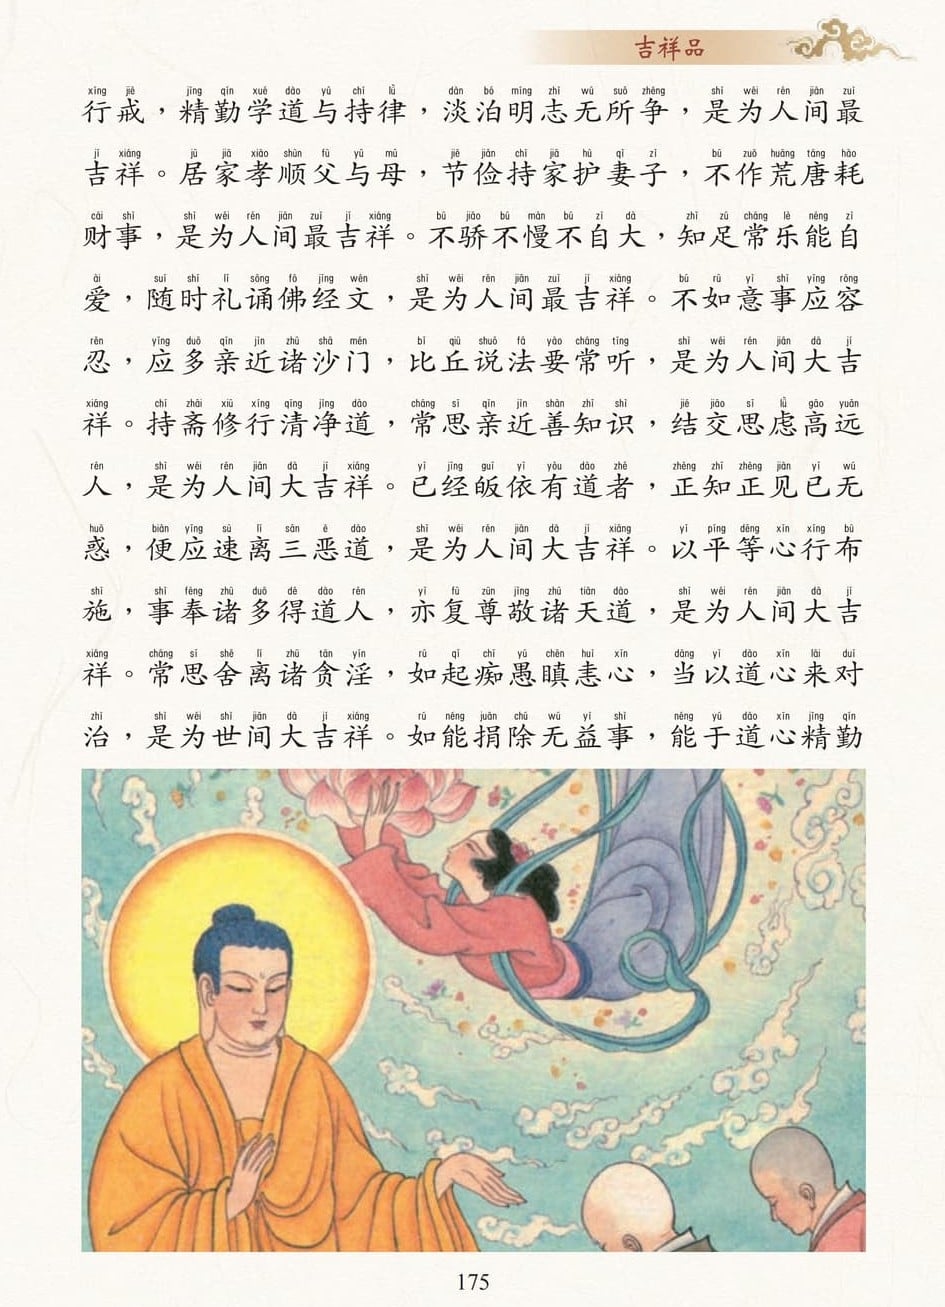 吉祥品
xíng jiè jīng qín xué dào yǔ chí lǜ dàn bó míng zhì wú suǒ zhēng shì wéi rén jiān zuì
行戒，精勤学道与持律，淡泊明志无所争，是为人间最
jí xiáng jū jiā xiào shùn fù yǔ mǔ jié jiǎn chí jiā hù qī zǐ bù zuò huāng táng hào
吉祥。居家孝顺父与母，节俭持家护妻子，不作荒唐耗
cái shì shì wéi rén jiān zuì jí xiáng bù jiāo bù màn bù zì dà zhī zú cháng lè néng zì
财事，是为人间最吉祥。不骄不慢不自大，知足常乐能自
ài suí shí lǐ sòng fó jīng wén shì wéi rén jiān zuì jí xiáng bù rú yì shì yīng róng
爱，随时礼诵佛经文，是为人间最吉祥。不如意事应容
rěn yīng duō qīn jìn zhū shā mén bǐ qiū shuō fǎ yào cháng tīng shì wéi rén jiān dà jí
忍，应多亲近诸沙门，比丘说法要常听，是为人间大吉
xiáng chí zhāi xiū xíng qīng jìng dào cháng sī qīn jìn shàn zhī shí jié jiāo sī lǜ gāo yuǎn
祥。持斋修行清净道，常思亲近善知识，结交思虑高远
rén shì wéi rén jiān dà jí xiáng yǐ jīng guī yī yǒu dào zhě zhèng zhī zhèng jiàn yǐ wú
人，是为人间大吉祥。已经皈依有道者，正知正见已无
huò biàn yīng sù lí sān è dào shì wéi rén jiān dà jí xiáng yǐ píng děng xīn xíng bù
惑，便应速离三恶道，是为人间大吉祥。以平等心行布
shī shì fèng zhū duō dé dào rén yì fù zūn jìng zhū tiān dào shì wéi rén jiān dà jí
施，事奉诸多得道人，亦复尊敬诸天道，是为人间大吉
xiáng cháng sī shě lí zhū tān yín rú qǐ chī yú chēn huì xīn dāng yǐ dào xīn lái duì
祥。常思舍离诸贪淫，如起痴愚瞋恚心，当以道心来对
zhì shì wéi shì jiān dà jí xiáng rú néng juān chú wú yì shì néng yú dào xīn jīng qín
治，是为世间大吉祥。如能捐除无益事，能于道心精勤
175